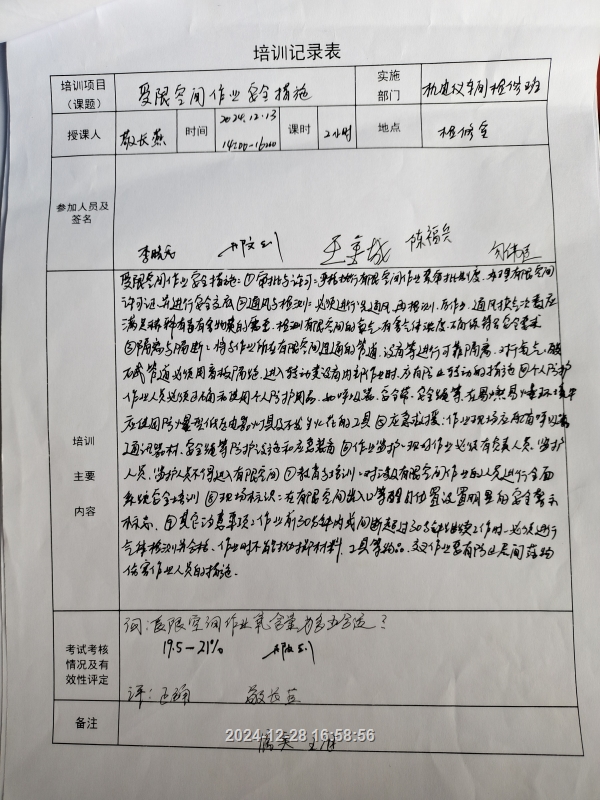 培训记录表
培训项目
（课题）
受限空间作业安全措施
实施
部门
机电仪车间检修班
授课人
敬长燕
时间
2024.12.13
14:00-16:00
课时
2小时
地点
检修室
参加人员及
签名
李晓龙 陈福兵
培训
主要
内容
受限空间作业安全措施：①审批与许可：严格执行有限空间作业票审批制度，办理有限空间
许可证，并进行安全交底②通风与检测：必须进行先通风，再检测，后作业，通风换气次数应
满足稀释有毒有害物质的需要，检测有限空间的氧气，有害气体浓度，确保符合安全要求
③隔离与隔断：将与作业所在有限空间且通的管道、设备等进行可靠隔离，对于氧气、酸
碱管道必须用盲板隔绝，进入转动设备内部作业时，应有防止转动的措施④个人防护
作业人员必须正确使用个人防护用品，如呼吸器、安全带、安全绳等，在易燃易爆环境中
应使用防爆型低压电器灯具及不发生火花的工具⑤应急救援：作业现场应配有呼吸器
通讯器材、安全绳等防护设施和应急装备⑥作业监护：现场作业必须有负责人、监护
人员，监护人员不得进入有限空间⑦教育与培训：对涉及有限空间作业的人员进行全面
系统安全培训⑧现场标识：在有限空间进入口等醒目位置设置明显的安全警示
标志。⑨其它注意事项：作业前30分钟内或间断超过30分钟继续工作时，必须进行
气体检测并合格、作业时不得抛掷材料、工具等物品，交叉作业要有防止层间落物
伤害作业人员的措施。
考试考核
情况及有
效性评定
问：受限空间作业氧含量为多少合适？
19.5-21%
评：正确 敬长燕
备注
2024-12-28 16:58:56